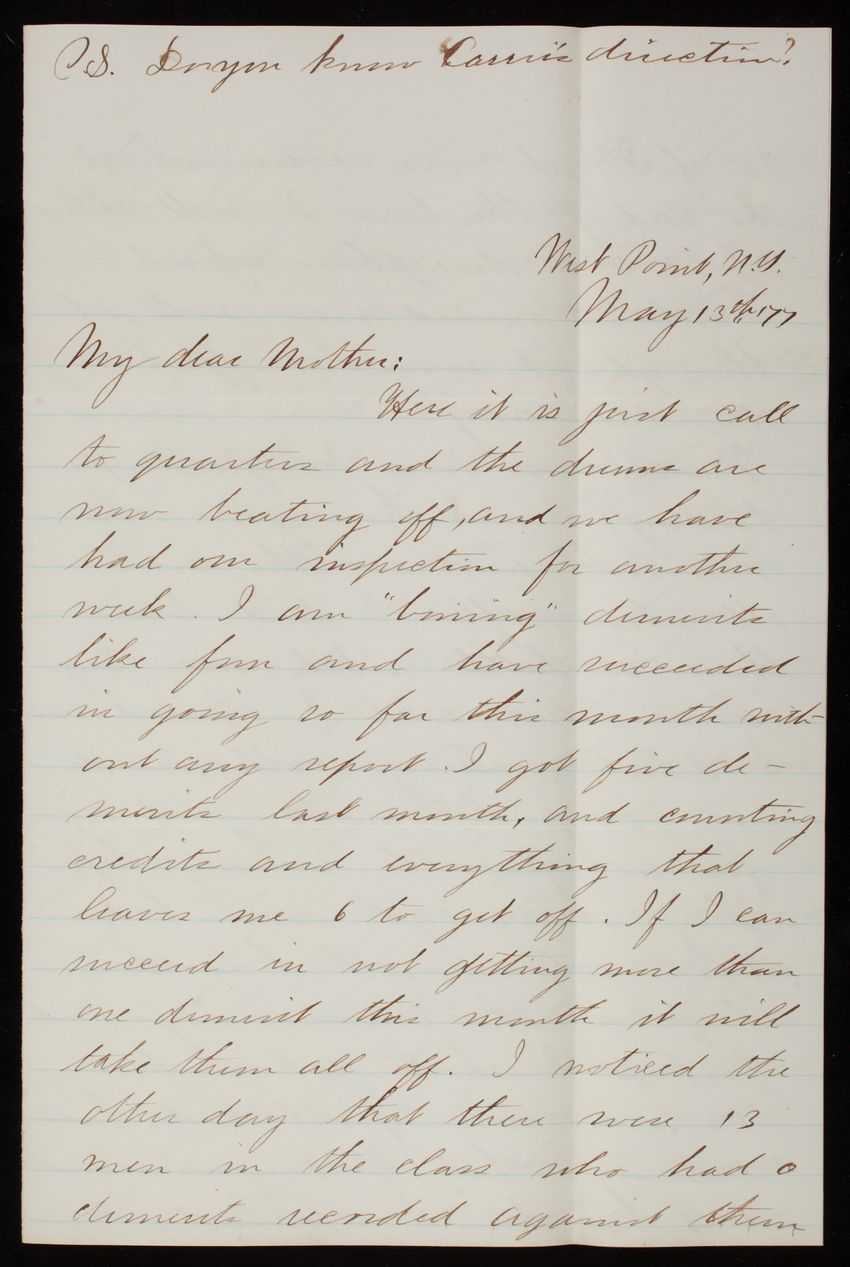 P.S. Do you know Carrie's direction?
West Point, N.Y.
May 13th, '77
My dear Mother:
Here it is just call
to quarters and the drums are
now beating off, and we have
had our inspection for another
week. I am "boning" demerits
like fun and have succeeded
in going so far this month with-
out any report. I got five de-
merits last month, and counting
credits and everything that
leaves me 6 to get off. If I can
succeed in not getting more than
one demerit this month it will
take them all off. I noticed the
other day that there were 13
men in the class who had 0
demerits recorded against them